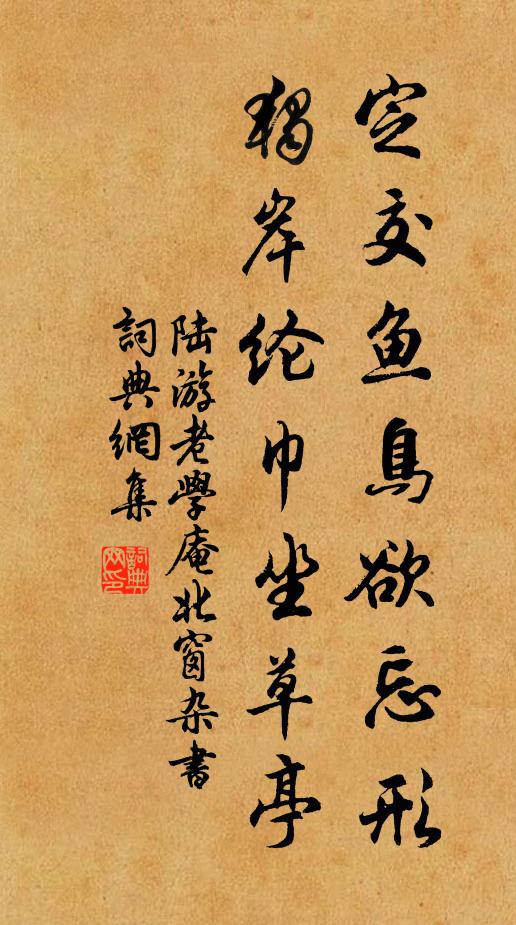 定交鱼鳥欲忘形
獨岸纶巾坐草亭
陆游老學庵北窗杂書
詞典網集
詞典網印